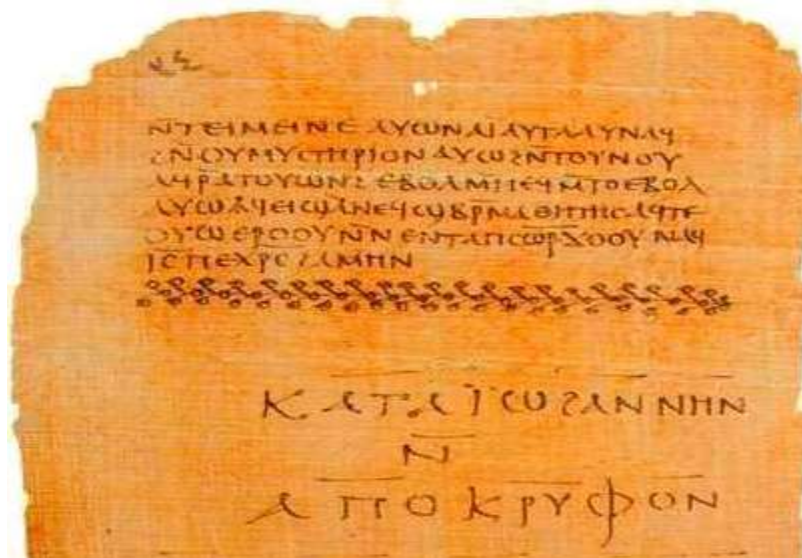 ⲛ̄ⲧⲉⲓⲙⲉⲓⲛⲉ ⲁⲩⲱⲛⲁⲓ̈ⲁⲩⲧⲁⲁⲩⲛⲁϥ
ϩⲛ̄ⲟⲩⲙⲩⲥⲧⲏⲣⲓⲟⲛ ⲁⲩⲱϩⲛ̄ⲧⲟⲩⲛⲟⲩ
ⲁϥⲣ̄ⲁⲧⲟⲩⲱⲛϩ ⲉⲃⲟⲗ ⲙ̄ⲡⲉϥⲙ̄ⲧⲟ ⲉⲃⲟⲗ
ⲁⲩⲱ ⲁϥⲉⲓ ϣⲁⲛⲉϥϣⲃⲣ̄ⲙⲁⲑⲏⲧⲏⲥ ⲁϥⲧⲉ
ⲟⲩⲱ ⲉⲣⲟⲟⲩ ⲛ̄ⲛⲉⲛⲧⲁⲡⲥⲱ̅ⲣ̅ϫⲟⲟⲩ ⲛⲁϥ
ⲓ̅ⲥ̅ ⲡⲉⲭ̅ⲣ̅ⲥ̅ ϩⲁⲙⲏⲛ
ⲕⲁⲧⲁ ⲓ̈ⲱϩⲁⲛⲛⲏⲛ
ⲛ̄
ⲁⲡⲟⲕⲣⲩⲫⲟⲛ